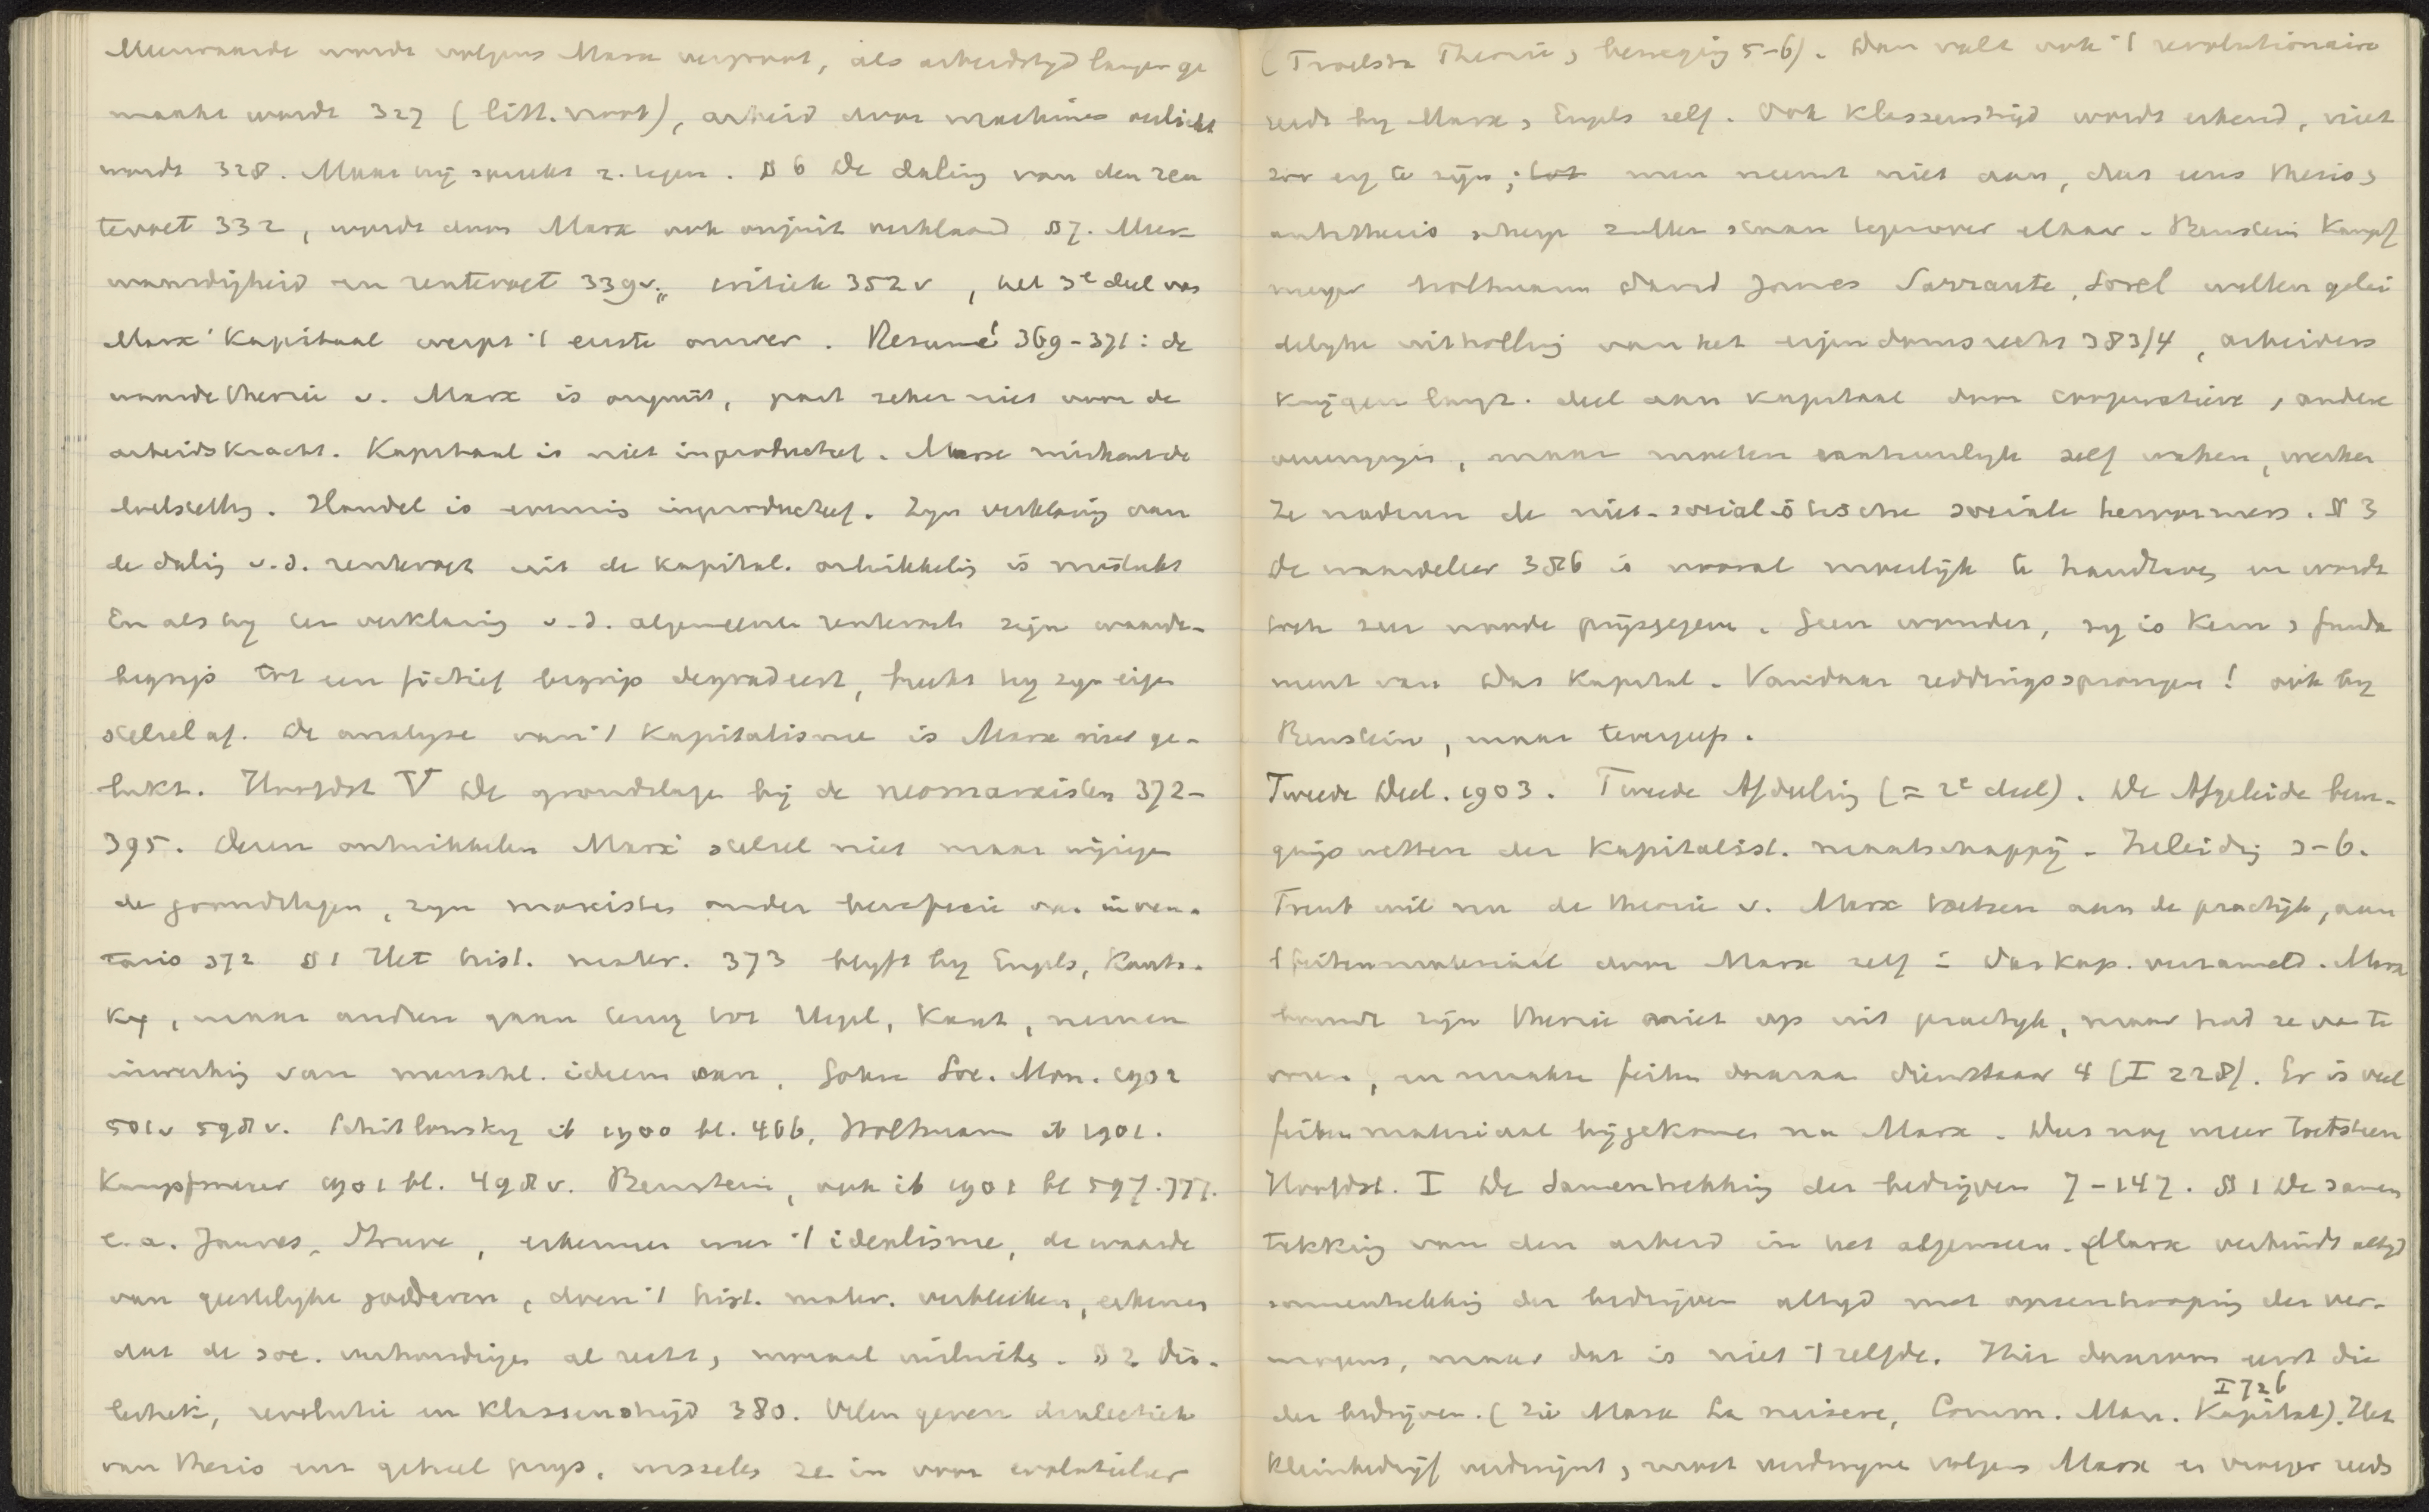 Meerwaarde wordt volgens Marx vergroot, als arbeidstijd langer ge
maakt wordt 327 (litt. noot), arbeid door machines verlicht
wordt 328. Maar hij spreekt z. tegen. § 6 De daling van den ren
tevoet 332, wordt door Marx ook onjuist verklaard § 7. Meer-
waardigheid en rentevoet 339v., critiek 352v, het 3e deel van
Marx' Kapitaal werpt 't eerste omver. Resumé 369-371: de
waardetheorie v. Marx is onjuist, gaat zeker niet voor de
arbeidskracht. Kapitaal is niet inproductief. Marx miskent de
Handel is evenmin inproductief. Zijn verklaring van
de daling v.d. rentevoet uit de kapital. ontwikkeling is mislukt
En als hij ter verklaring v.d. algemeenen rentevoet zijn waarde-
begrip tot een fictief begrip degradeert, breekt hij zijn eigen
stelsel af. De analyse van 't Kapitalisme is Marx niet ge-
lukt. Hoofdst V De grondslagen bij de neomarxisten 372-
395. Dezen ontwikkelen Marx' stelsel niet maar wijzigen
de grondslagen, zijn marxisten onder beneficie van inven-
taris 372 § 1 Het hist. mater. 373 blijft bij Engels, Kauts-
ky, maar andren gaan terug tot Hegel, Kant, nemen
inwerking van menschl. ideeen aan, Soz. Mon. 1902
501v 598v. Schitlowsky ib 1900 bl. 466, Woltmann ib 1901.
Kampfmeyer 1901 bl. 498v. Bernstein, ook ib 1901 bl 597. 777.
e.a. Jaures, Struve, erkennen weer 't idealisme, de waarde
van geestelijke goederen, door 't hist. mater. verbleeken, erkennen
dat de soc. verhoudingen al recht, moraal . § 2 Dia-
lectiek, revolutie en Klassenstrijd 380. Velen geven dialectiek
van thesis enz geheel prijs, wisselen ze in voor evolutieleer
(Troelstra Theorie, beweging 5-6). Dan valt ook 't revolutionaire
reeds bij Marx, Engels zelf. Ook Klassenstrijd wordt erkend, niet
zoo erg te zijn; men neemt niet aan, dat eens thesis,
antithesis scherp zullen staan tegenover elkaar. Bernstein Kampf
meyer Woltmann David Jaures Sarraute, Sorel willen gelei
delijke uitholling van het eigendomsrecht 383/4, arbeiders
krijgen langz. deel aan kapitaal door corporatieve, andere
vereenigingen, maar moeten aanhoudelijk zelf waken, werken
Ze naderen de niet-socialistische sociale hervormers. § 3
De waardeleer 386 is vooral moeilijk te handhaven en wordt
toch zeer noode prijsgegeven. Geen wonder, zij is Kern, funda
ment van Das Kapital. Vandaar reddingssprongen! ook bij
Bernstein, maar tevergeefs.
Tweede Deel. 1903. Tweede Afdeeling (= 2e deel). De Afgeleide bewe-
gingswetten der kapitalist. maatschappij. Inleiding 3-6.
Treub wil nu de theorie v. Marx toetsen aan de practijk, aan
't feitenmateriaal door Marx zelf in Das Kap. verzameld. Marx
bouwde zijn theorie niet op uit practijk, maar had ze van te
voren, en maakte feiten daaraan dienstbaar 4 (I 228). Er is veel
feitenmateriaal bijgekomen na Marx. Dus nog meer toetsteen
Hoofdst. I De Samentrekking der bedrijven 7-147. § 1 De samen
trekking van den arbeid in het algemeen. (Marx verbindt altijd
samentrekking der bedrijven altijd met opeenhooping der ver-
mogens, maar dat is niet 't zelfde. Hier daarom eerst die
I 726
der bedrijven. (Zie Marx La misere, Comm. Man. Kapital). Het
Kleinbedrijf verdwijnt, moet verdwijnen volgens Marx en vroeger reeds